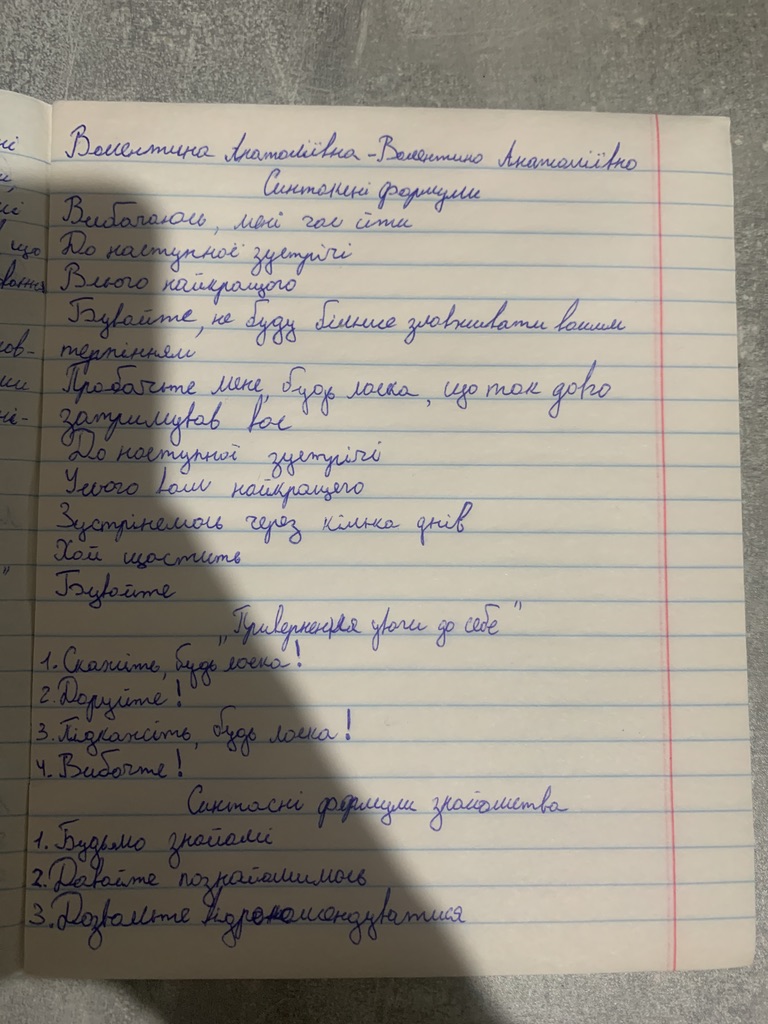 Валентина Анатоліївна - Валентино Анатоліївно
Синтонені формули
Вибачаюсь, мені час йти
До наступної зустрічі
Всього найкращого
Бувайте, не буду більше зловживати вашим
терпінням
Пробачьте мене, будь ласка, що так довго
затримував вас
До наступної зустрічі
Усього вам найкращего
Зустрінемось через кілька днів
Хай щастить
Бувайте
„Привернення уваги до себе"
1. Скажіть, будь ласка!
2. Даруйте!
3. Підкажіть, будь ласка!
4. Вибачте!
Синтасні формули знайомства
1. Будьмо знайомі
2. Давайте познайомимось
3. Дозвольте відрекомендуватися
ні
що
вання
ов-
ми
ні-
"